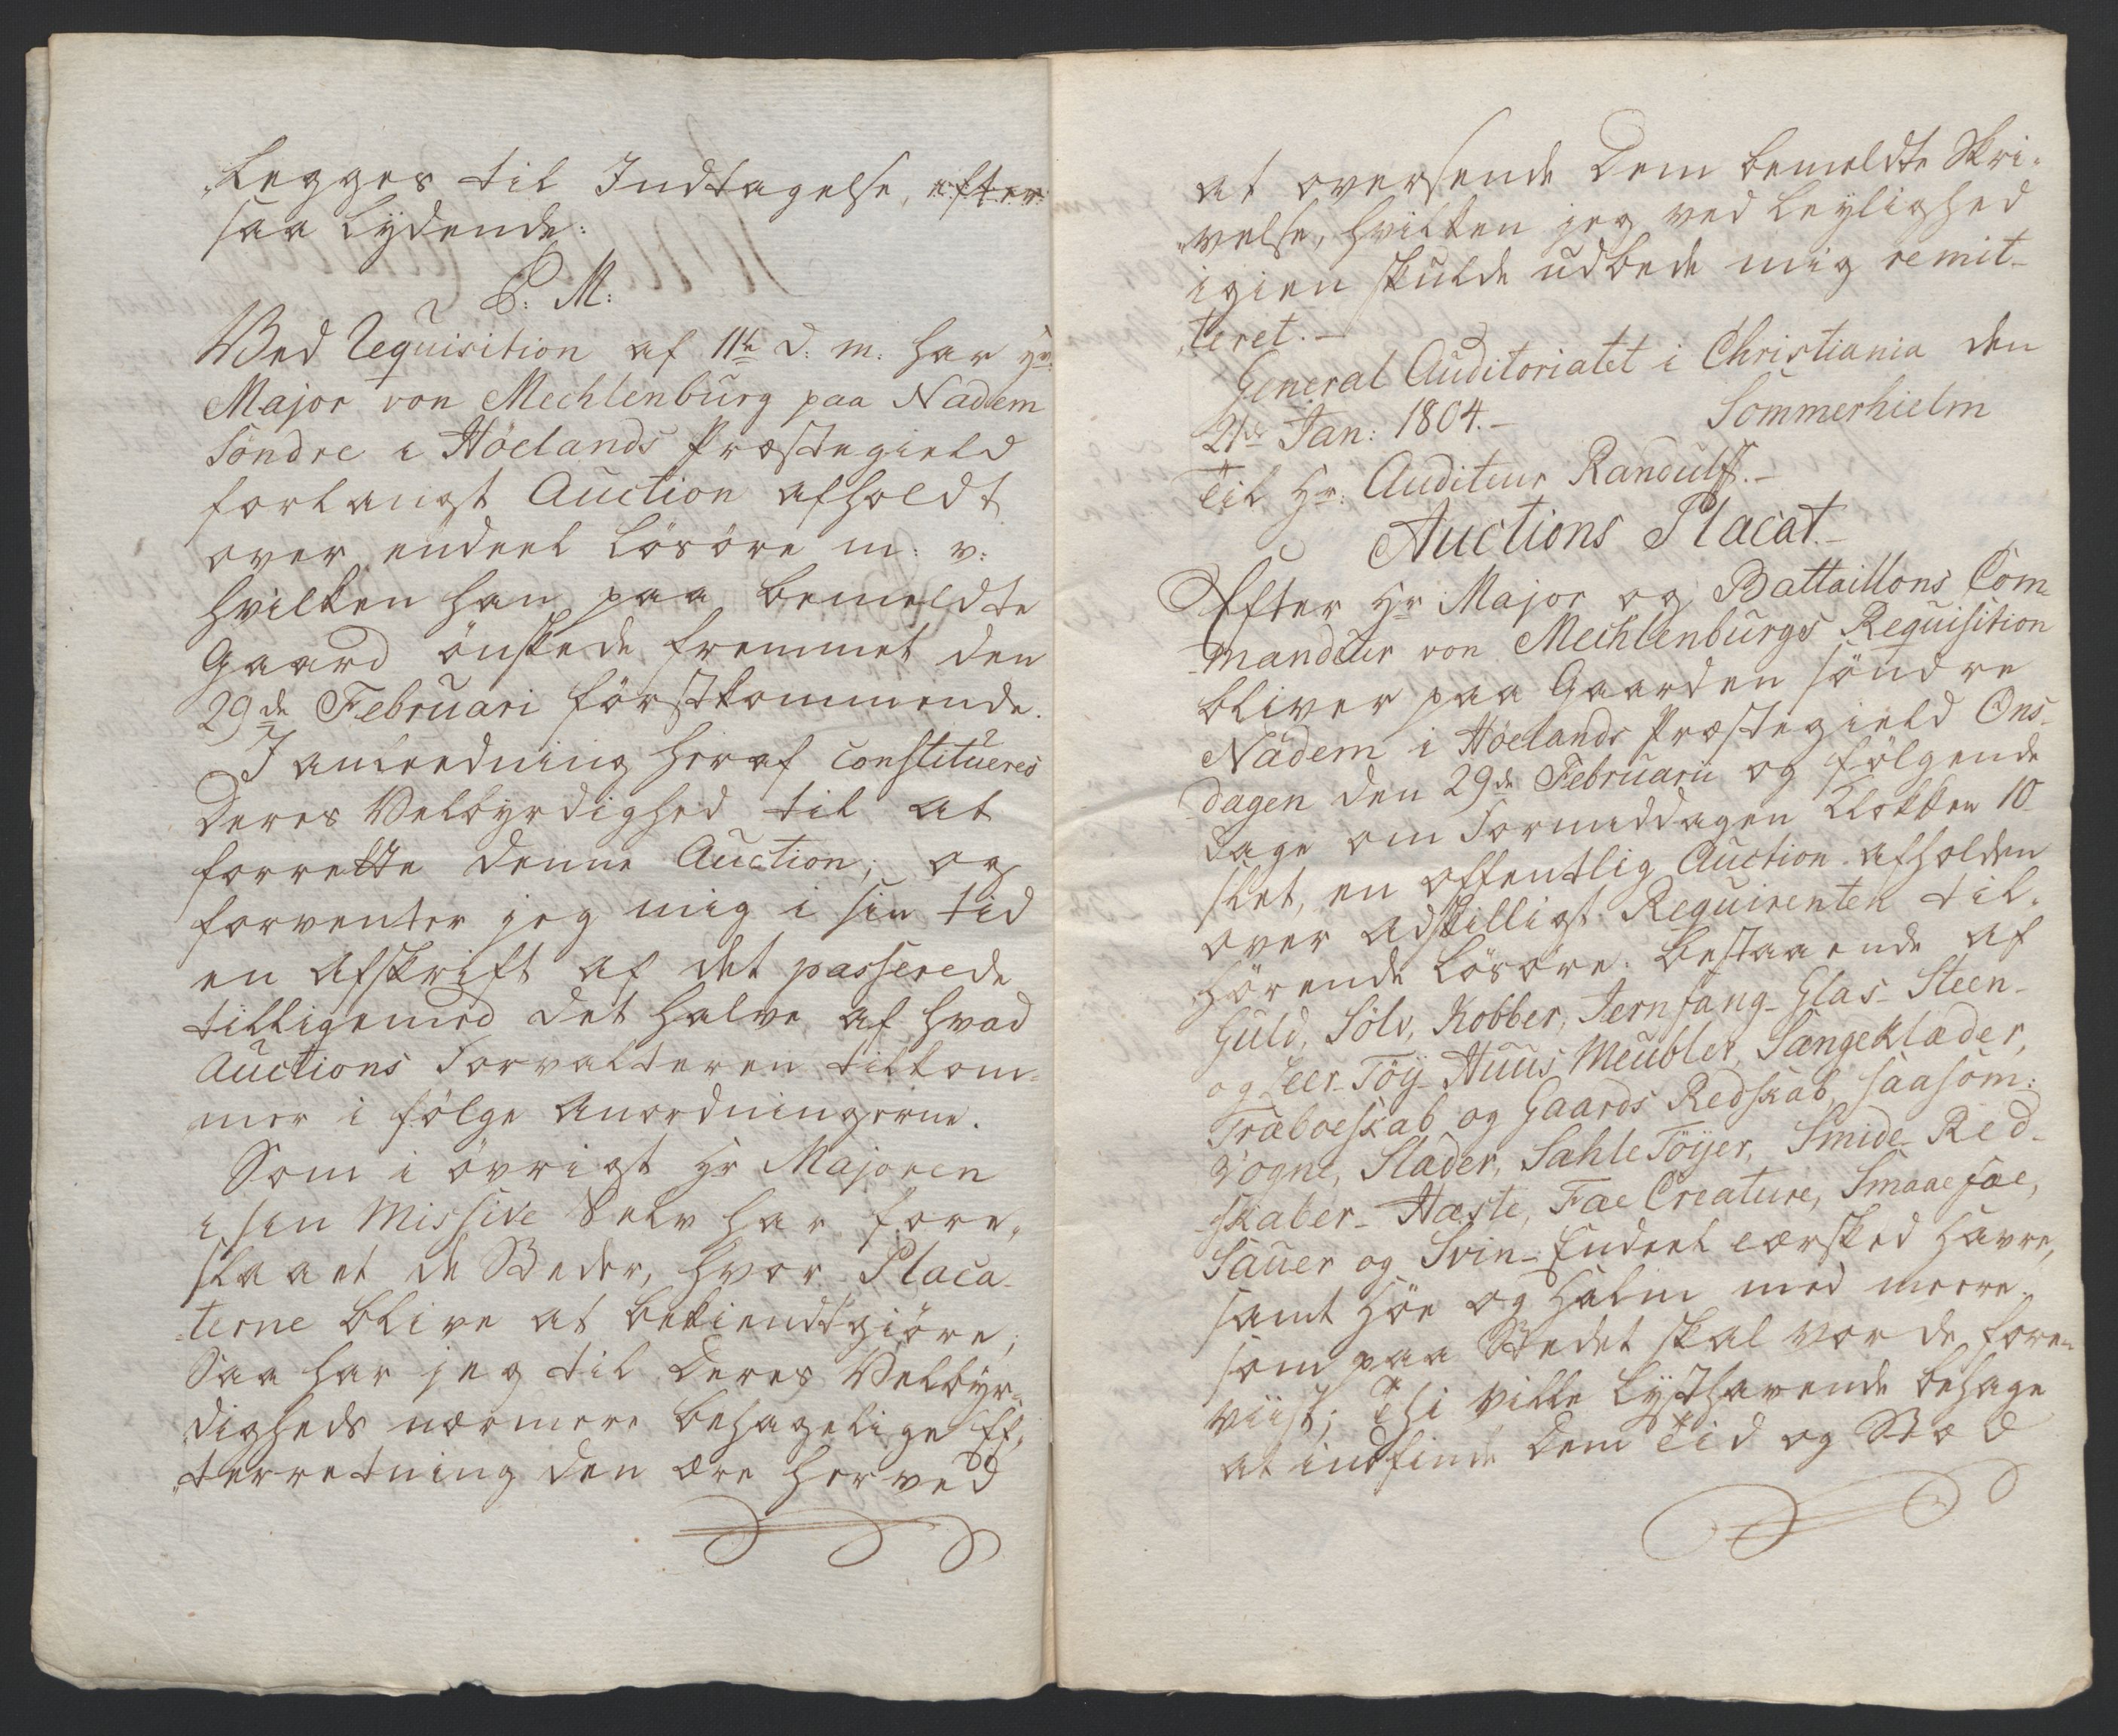 „Legges til Indtagelse, efter
saa Lydende:
P: M:
Ved Requisition af 11te d: m: har Hr:
Major von Mechlenburg paa Nadem
Søndre i Høelands Præstegield
forlangt Auction afholdt
over endeel Løsøre m: v:
hvilken han paa bemeldte
Gaard ønskede fremmet den
29de Februari førstkommende.
I anleedning heraf constitueres
Deres Velbyrdighed til at
forrette denne Auction; og
forventer jeg mig i sin tid
en Afskrift af det passerede
tilligemed det halve af hvad
Auctions Forvalteren tilkom-
mer i følge Anordningerne.
Som i øvrigt Hr Majoren
i sin Missive Selv har fore-
slaaet de Steder, hvor Placa-
terne blive at bekiendtgiøre;
Saa har jeg til Deres Velbyr-
digheds nærmere behagelige Ef-
„terretning den ære herved
at oversende Dem bemeldte Skri-
„velse, hvilken jeg ved Leylighed
igien skulde udbede mig remit-
„teret.-
General Auditoriatet i Christiania den
21de Jan: 1804.- Sommerhielm
Til Hr: Auditeur Randulff.-
Auctions Placat.-
Efter Hr Major og Battaillons Com-
mandeur von Mechlenburgs Requisition
bliver paa Gaarden søndre
Nadem i Høelands Præstegield Ons-
dagen den 29de Februarii og følgende
Dage om Formiddagen Klokken 10
slet, en offentlig Auction afholden
over adskilligt Requirenten til-
hørende Løsøre. bestaaende af
Guld, Sølv, Kobber, Jernfang- Glas- Steen-
og Leer-Tøy- Huus Meubler, Sængeklæder,
Træboeskab og Gaards Redskab, saasom:
Vogne, Slæder, Sahle Tøyer, Smide-Red-
„skaber- Hæste, Fæe Creature, Smaae fæe,
Sauer og Svin- Endeel tærsked Havre,
samt Høe og Halm med meere.
som paa Stedet skal vorde fore-
viist; Thi ville Lysthavende behage
at indfinde Dem Tid og Stæd